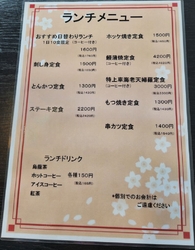 ランチメニュー
おすすめ日替わりランチ
1日10食限定 (コーヒー付き)
1400円
刺し身定食 1900円
とんかつ定食 1300円
ステーキ定食 2200円
ホッケ焼き定食 1500円
鰻蒲焼定食 2400円
(コーヒー付き)
特上車海老天婦羅定食
(コーヒー付き) 3000円
もつ焼き定食 1300円
串カツ定食 1400円
ランチドリンク
烏龍茶
ホットコーヒー 各種150円
アイスコーヒー
紅茶
*個別でのお会計は
ご遠慮ください